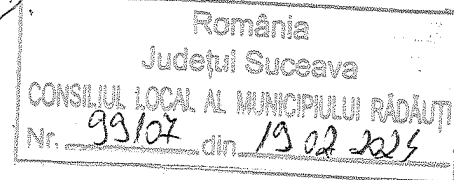 România
Județul Suceava
CONSILIUL LOCAL AL MUNICIPIULUI RĂDĂUȚI
Nr. 99107 din 19 02 2024